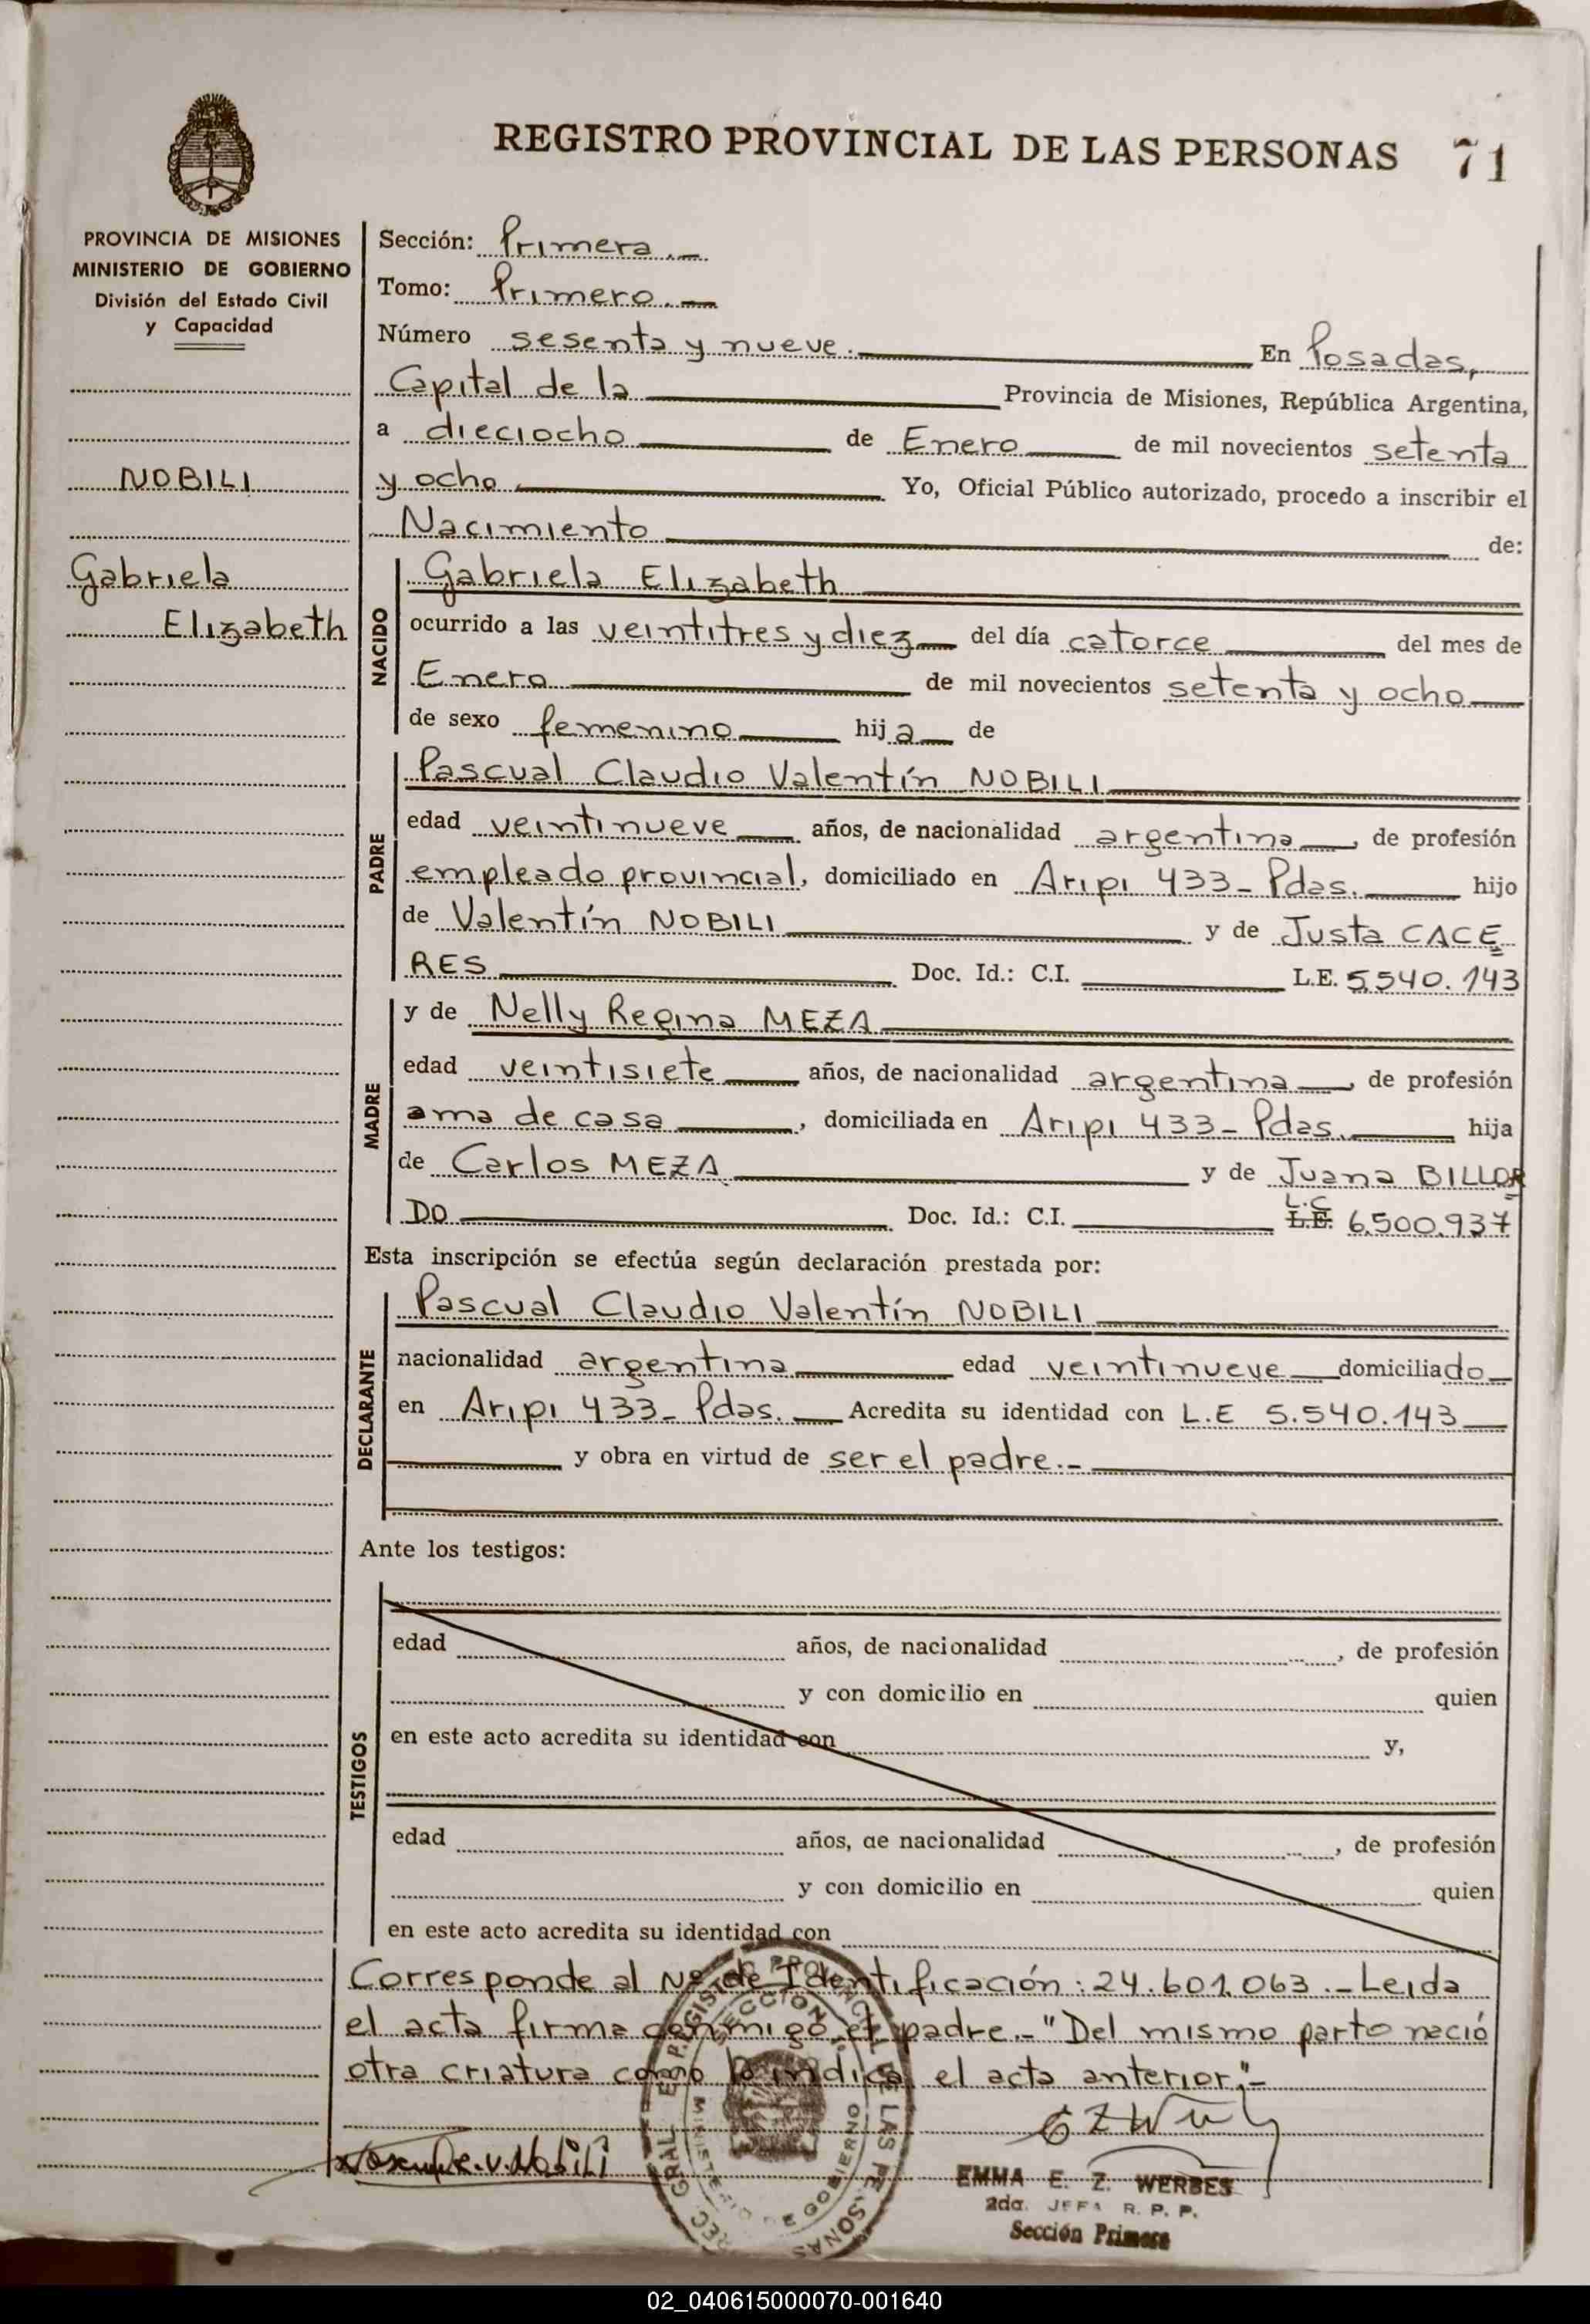 REGISTRO PROVINCIAL DE LAS PERSONAS 71
PROVINCIA DE MISIONES
MINISTERIO DE GOBIERNO
División del Estado Civil
y Capacidad
NOBILI
Gabriela
Elizabeth
Sección: Primera.-
Tomo: Primero.-
Número sesenta y nueve. En Posadas,
Capital de la Provincia de Misiones, República Argentina,
a dieciocho de Enero de mil novecientos setenta
y ocho. Yo, Oficial Público autorizado, procedo a inscribir el
Nacimiento de:
NACIDO
Gabriela Elizabeth
ocurrido a las veintitres y diez del día catorce del mes de
Enero de mil novecientos setenta y ocho
de sexo femenino hija de
PADRE
Pascual Claudio Valentín NOBILI
edad veintinueve años, de nacionalidad argentina, de profesión
empleado provincial, domiciliado en Aripi 433- Pdas. hijo
de Valentín NOBILI y de Justa CACE
RES Doc. Id.: C.I. L.E. 5.540.143
MADRE
y de Nelly Regina MEZA
edad veintisiete años, de nacionalidad argentina, de profesión
ama de casa, domiciliada en Aripi 433- Pdas. hija
de Carlos MEZA y de Juana BILLOR
L.C
DO Doc. Id.: C.I. L.E. 6.500.937
Esta inscripción se efectúa según declaración prestada por:
DECLARANTE
Pascual Claudio Valentín NOBILI
nacionalidad argentina edad veintinueve domiciliado
en Aripi 433- Pdas. Acredita su identidad con L.E 5.540.143
y obra en virtud de ser el padre.-
Ante los testigos:
TESTIGOS
edad años, de nacionalidad , de profesión
y con domicilio en quien
en este acto acredita su identidad con y,
edad años, de nacionalidad , de profesión
y con domicilio en quien
en este acto acredita su identidad con
Corresponde al Nº de Identificación: 24.601.063.-Leida
el acta firma conmigo el padre.-"Del mismo parto nació
otra criatura como lo indica el acta anterior".-
EMMA E. Z. WERBES
2da. JEFA R. P. P.
Sección Primera
SECCION
MINISTERIO DE GOBIERNO
02_040615000070-001640